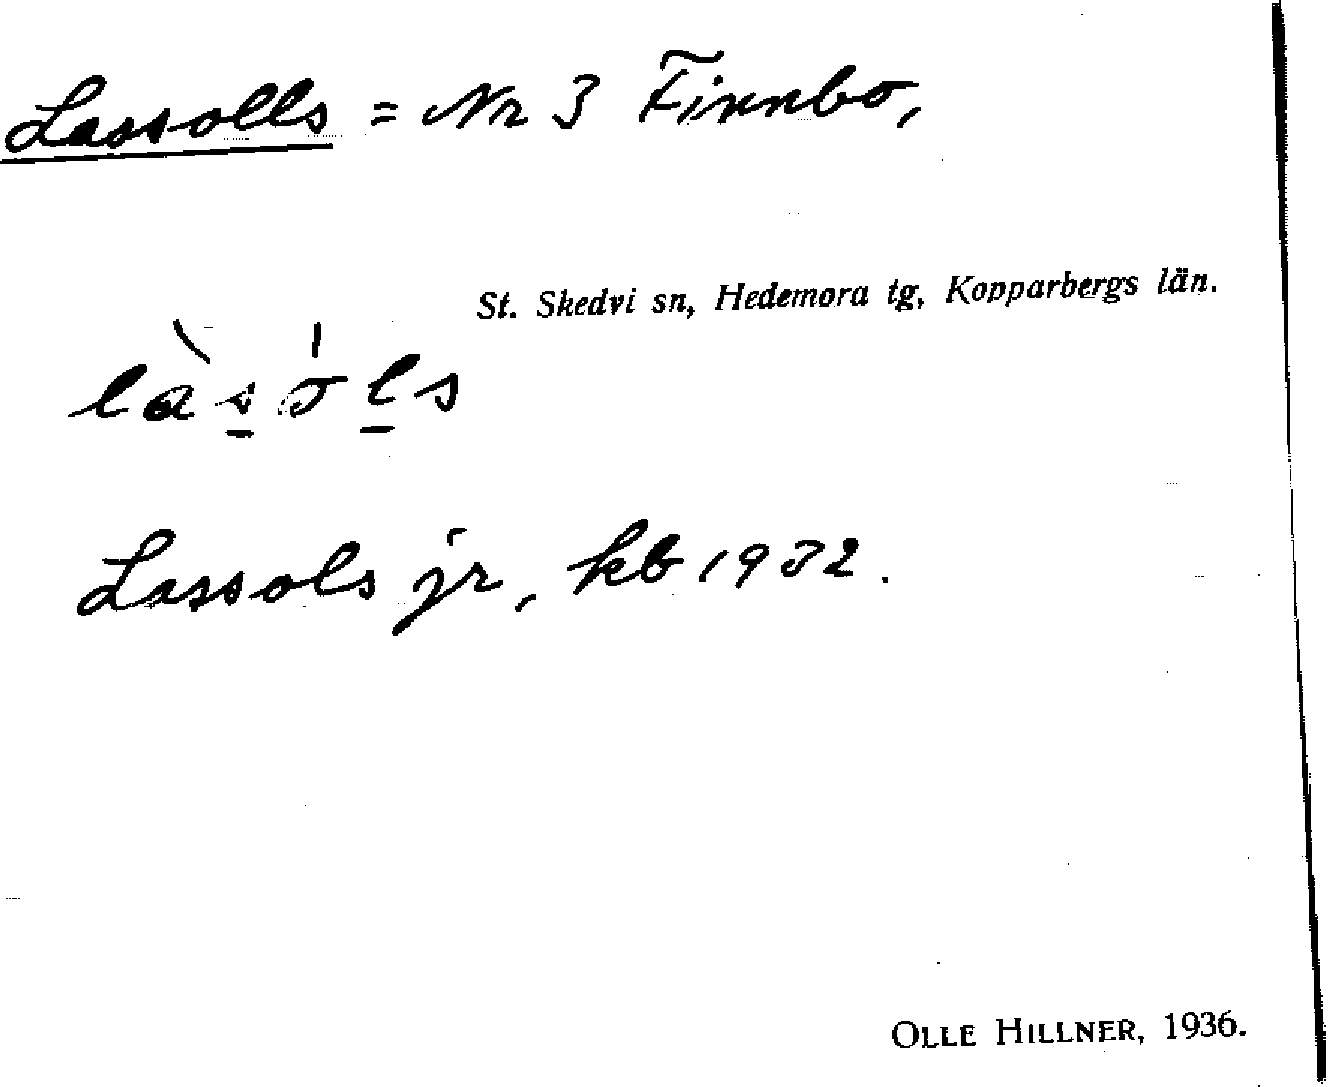 Lassolls = Nr 3 Finnbo,
St. Skedvi sn, Hedemora tg, Kopparbergs län.
Lassols jr, kb 1932.
OLLE HILLNER, 1936.